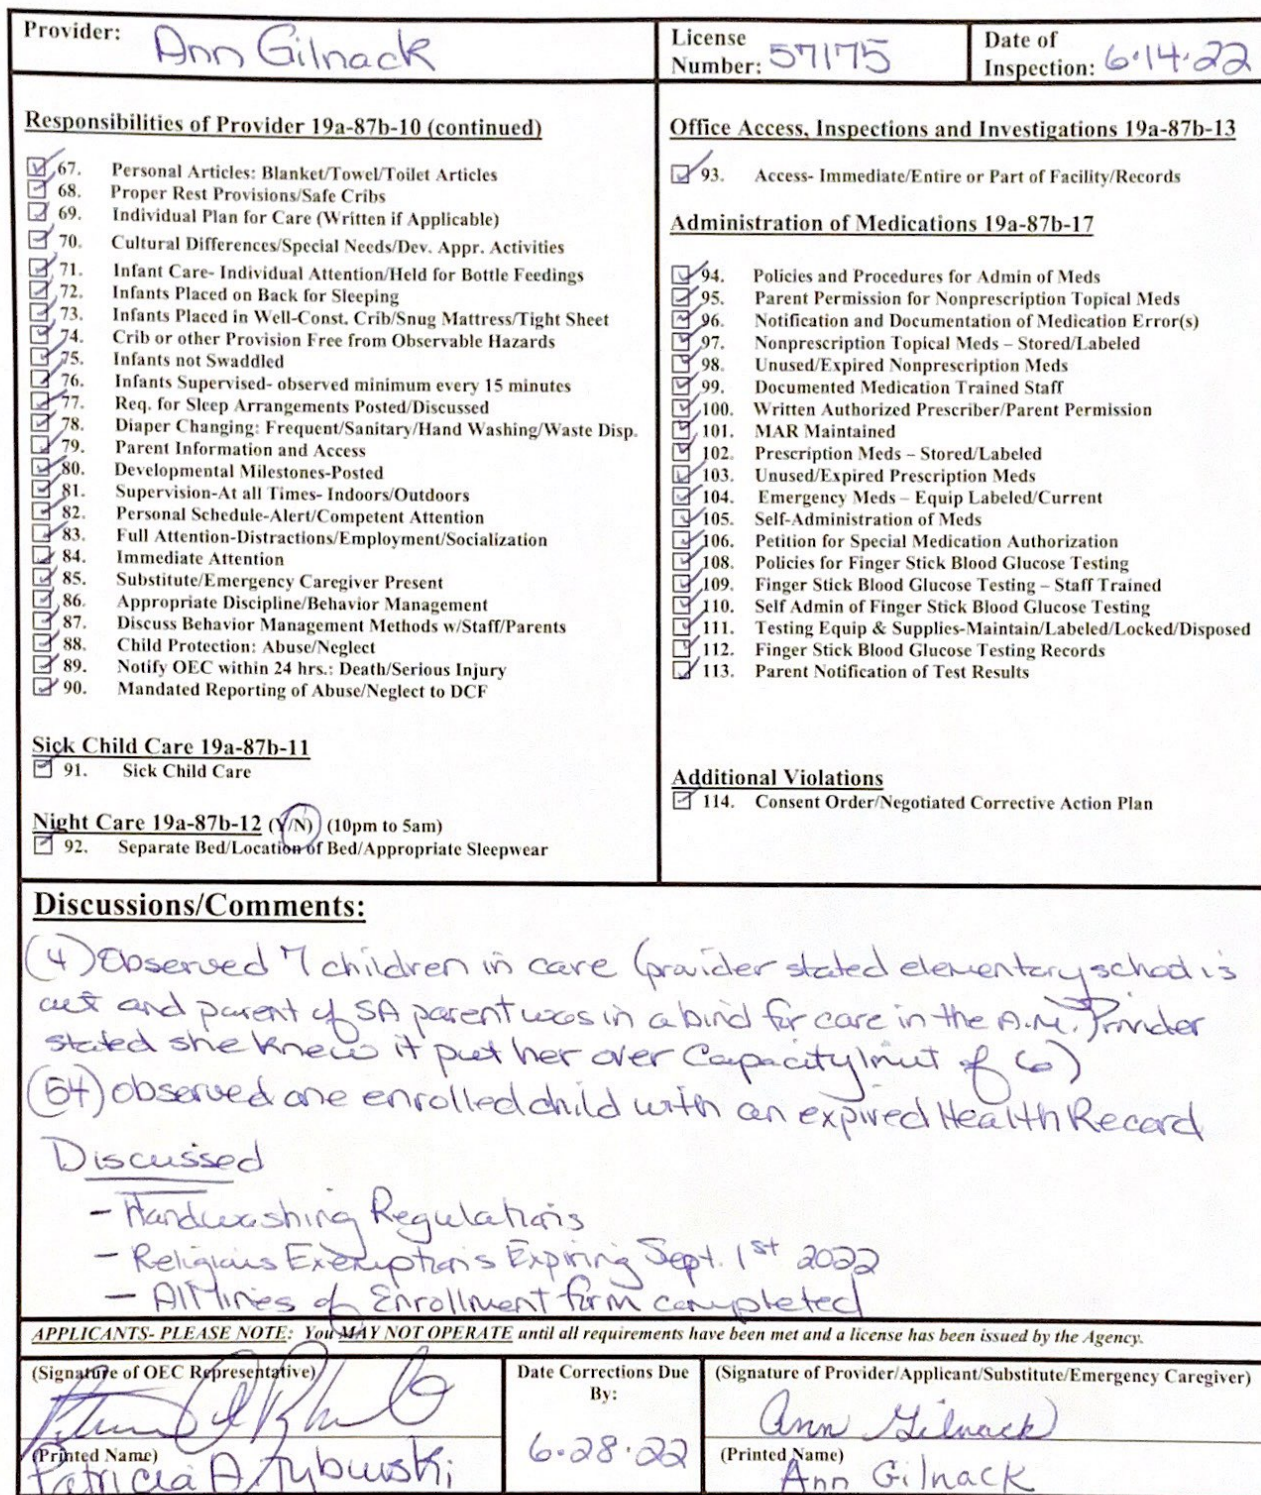 Provider: Ann Gilnack
License Number: 57175
Date of Inspection: 6.14.22
Responsibilities of Provider 19a-87b-10 (continued)
67. Personal Articles: Blanket/Towel/Toilet Articles
68. Proper Rest Provisions/Safe Cribs
69. Individual Plan for Care (Written if Applicable)
70. Cultural Differences/Special Needs/Dev. Appr. Activities
71. Infant Care- Individual Attention/Held for Bottle Feedings
72. Infants Placed on Back for Sleeping
73. Infants Placed in Well-Const. Crib/Snug Mattress/Tight Sheet
74. Crib or other Provision Free from Observable Hazards
75. Infants not Swaddled
76. Infants Supervised- observed minimum every 15 minutes
77. Req. for Sleep Arrangements Posted/Discussed
78. Diaper Changing: Frequent/Sanitary/Hand Washing/Waste Disp.
79. Parent Information and Access
80. Developmental Milestones-Posted
81. Supervision-At all Times- Indoors/Outdoors
82. Personal Schedule-Alert/Competent Attention
83. Full Attention-Distractions/Employment/Socialization
84. Immediate Attention
85. Substitute/Emergency Caregiver Present
86. Appropriate Discipline/Behavior Management
87. Discuss Behavior Management Methods w/Staff/Parents
88. Child Protection: Abuse/Neglect
89. Notify OEC within 24 hrs.: Death/Serious Injury
90. Mandated Reporting of Abuse/Neglect to DCF
Sick Child Care 19a-87b-11
91. Sick Child Care
Night Care 19a-87b-12 (Y/N) (10pm to 5am)
92. Separate Bed/Location of Bed/Appropriate Sleepwear
Office Access, Inspections and Investigations 19a-87b-13
93. Access- Immediate/Entire or Part of Facility/Records
Administration of Medications 19a-87b-17
94. Policies and Procedures for Admin of Meds
95. Parent Permission for Nonprescription Topical Meds
96. Notification and Documentation of Medication Error(s)
97. Nonprescription Topical Meds – Stored/Labeled
98. Unused/Expired Nonprescription Meds
99. Documented Medication Trained Staff
100. Written Authorized Prescriber/Parent Permission
101. MAR Maintained
102. Prescription Meds – Stored/Labeled
103. Unused/Expired Prescription Meds
104. Emergency Meds – Equip Labeled/Current
105. Self-Administration of Meds
106. Petition for Special Medication Authorization
108. Policies for Finger Stick Blood Glucose Testing
109. Finger Stick Blood Glucose Testing – Staff Trained
110. Self Admin of Finger Stick Blood Glucose Testing
111. Testing Equip & Supplies-Maintain/Labeled/Locked/Disposed
112. Finger Stick Blood Glucose Testing Records
113. Parent Notification of Test Results
Additional Violations
114. Consent Order/Negotiated Corrective Action Plan
Discussions/Comments:
(4) Observed 7 children in care (provider stated elementary school is
out and parent of SA parent was in a bind for care in the A.M. Provider
stated she knew it put her over Capacity limit of 6)
(54) observed one enrolled child with an expired Health Record
Discussed
- Handwashing Regulations
- Religious Exemptions Expiring Sept. 1st 2022
- All lines of Enrollment form completed
APPLICANTS- PLEASE NOTE: You MAY NOT OPERATE until all requirements have been met and a license has been issued by the Agency.
(Signature of OEC Representative)
(Printed Name)
Patricia A
Date Corrections Due By:
6.28.22
(Signature of Provider/Applicant/Substitute/Emergency Caregiver)
Ann Gilnack
(Printed Name)
Ann Gilnack